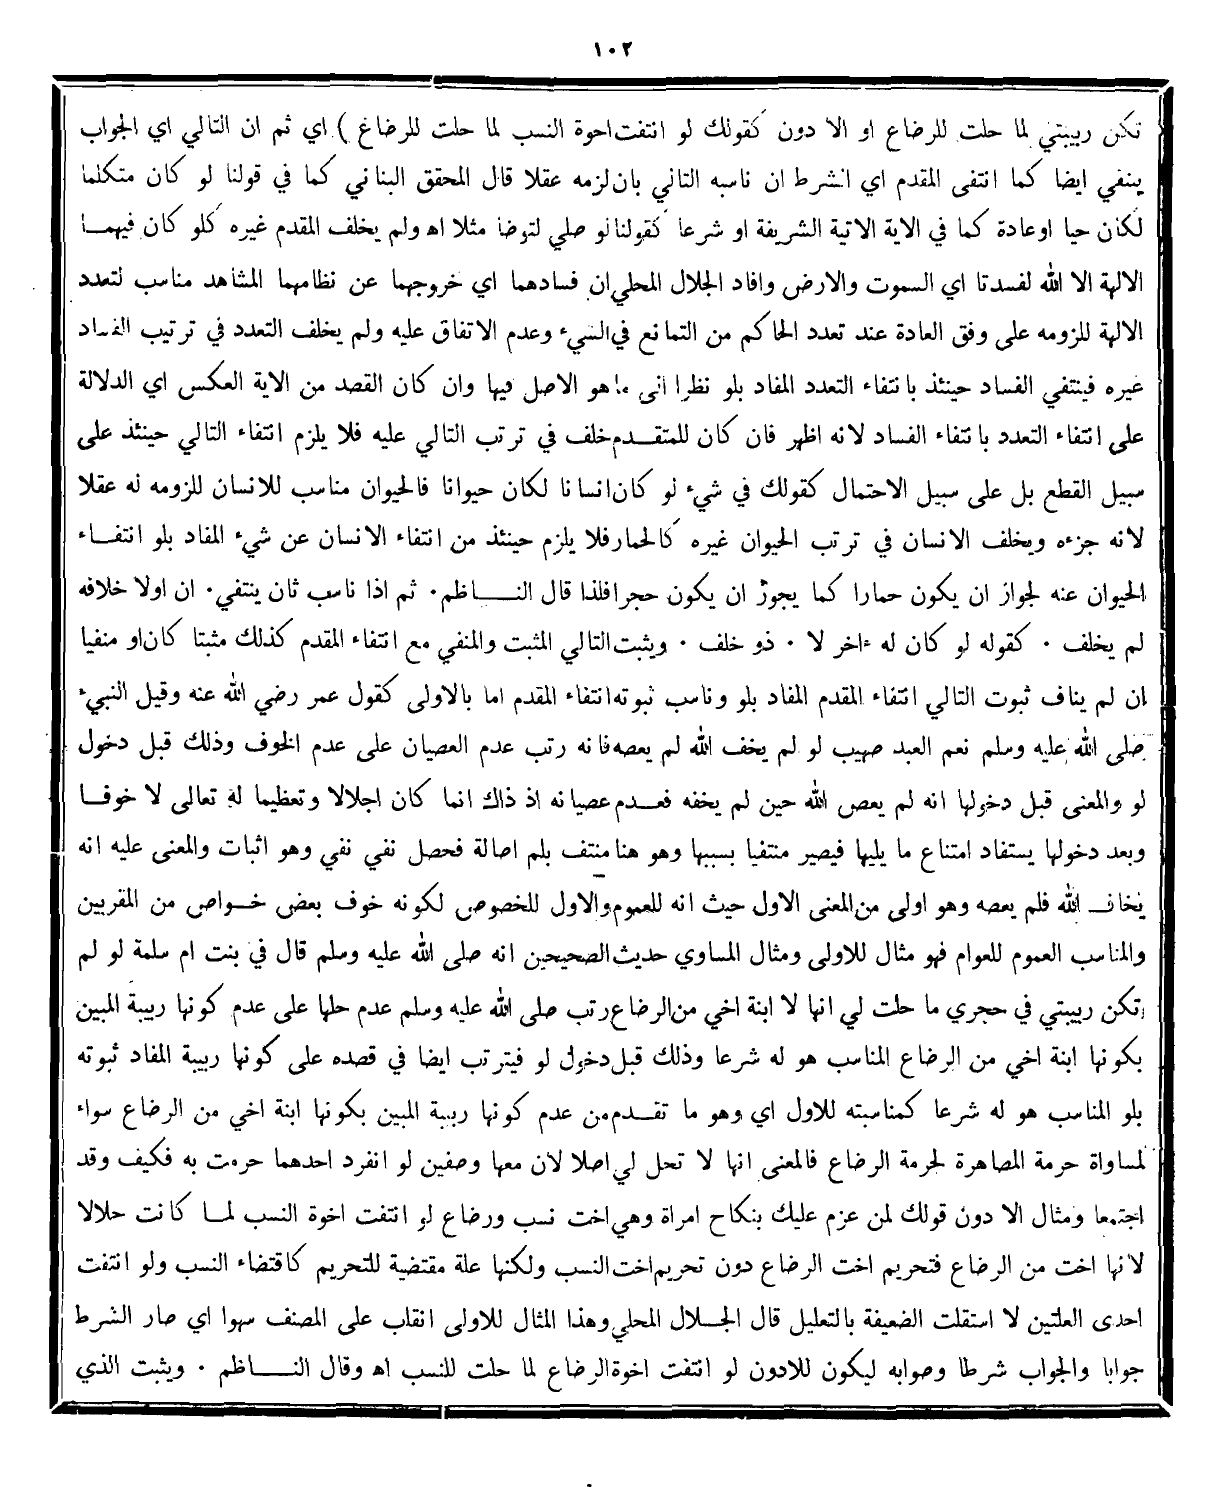 ١٠٢
تكن ربيبتي لما حلت للرضاع او الا دون كقولك لو انتفت احوة النسب لما حلت للرضاع ) اي ثم ان التالي اي الجواب
ينفي ايضا كما انتفى المقدم اي الشرط ان ناسبه التالي بان لزمه عقلا قال المحقق البناني كما في قولنا لو كان متكلما
لكان حيا او عادة كما في الاية الاتية الشريفة او شرعا كقولنا لو صلي لتوضا مثلا اه ولم يخلف المقدم غيره كلو كان فيهما
الالهة الا الله لفسدتا اي السموت والارض وافاد الجلال المحلي ان فسادهما اي خروجهما عن نظامهما المشاهد مناسب لتعدد
الالهة للزومه على وفق العادة عند تعدد الحاكم من التمانع في الشيء وعدم الاتفاق عليه ولم يخلف التعدد في ترتيب الفساد
غيره فينتفي الفساد حينئذ بانتفاء التعدد المفاد بلو نظرا الى ما هو الاصل فيها وان كان القصد من الاية العكس اي الدلالة
على انتفاء التعدد بانتفاء الفساد لانه اظهر فان كان للمتقدم خلف في ترتب التالي عليه فلا يلزم انتفاء التالي حينئذ على
سبيل القطع بل على سبيل الاحتمال كقولك في شيء لو كان انسانا لكان حيوانا فالحيوان مناسب للانسان للزومه له عقلا
لانه جزءه ويخلف الانسان في ترتب الحيوان غيره كالحمار فلا يلزم حينئذ من انتفاء الانسان عن شيء المفاد بلو انتفاء
الحيوان عنه لجواز ان يكون حمارا كما يجوز ان يكون حجرا فلذا قال الناظم ٠ ثم اذا ناسب ثان ينتفي ٠ ان اولا خلافه
لم يخلف ٠ كقوله لو كان له ءاخر لا ٠ ذو خلف ٠ ويثبت التالي المثبت والمنفي مع انتفاء المقدم كذلك مثبتا كان او منفيا
ان لم يناف ثبوت التالي انتفاء المقدم المفاد بلو وناسب ثبوته انتفاء المقدم اما بالاولى كقول عمر رضي الله عنه وقيل النبيء
صلى الله عليه وسلم نعم العبد صهيب لو لم يخف الله لم يعصه فانه رتب عدم العصيان على عدم الخوف وذلك قبل دخول
لو والمعنى قبل دخولها انه لم يعص الله حين لم يخفه فعدم عصيانه اذ ذاك انما كان اجلالا وتعظيما له تعالى لا خوفا
وبعد دخولها يستفاد امتناع ما يليها فيصير منتفيا بسببها وهو هنا منتف بلم اصالة فحصل نفي نفي وهو اثبات والمعنى عليه انه
يخاف الله فلم يعصه وهو اولى من المعنى الاول حيث انه للعموم والاول للخصوص لكونه خوف بعض خواص من المقربين
والمناسب العموم للعوام فهو مثال للاولى ومثال المساوي حديث الصحيحين انه صلى الله عليه وسلم قال في بنت ام سلمة لو لم
تكن ربيبتي في حجري ما حلت لي انها لا ابنة اخي من الرضاع رتب صلى الله عليه وسلم عدم حلها على عدم كونها ربيبة المبين
بكونها ابنة اخي من الرضاع المناسب هو له شرعا وذلك قبل دخول لو فيترتب ايضا في قصده على كونها ربيبة المفاد ثبوته
بلو المناسب هو له شرعا كمناسبته للاول اي وهو ما تقدم من عدم كونها ربيبة المبين بكونها ابنة اخي من الرضاع سواء
لمساواة حرمة المصاهرة لحرمة الرضاع فالمعنى انها لا تحل لي اصلا لان معها وصفين لو انفرد احدهما حرمت به فكيف وقد
اجتمعا ومثال الا دون قولك لمن عزم عليك بنكاح امراة وهي اخت نسب ورضاع لو انتفت اخوة النسب لما كانت حلالا
لانها اخت من الرضاع فتحريم اخت الرضاع دون تحريم اخت النسب ولكنها علة مقتضية للتحريم كاقتضاء النسب ولو انتفت
احدى العلتين لا استقلت الضعيفة بالتعليل قال الجلال المحلي وهذا المثال للاولى انقلب على المصنف سهوا اي صار الشرط
جوابا والجواب شرطا وصوابه ليكون للادون لو انتفت اخوة الرضاع لما حلت للنسب اه وقال الناظم ٠ ويثبت الذي